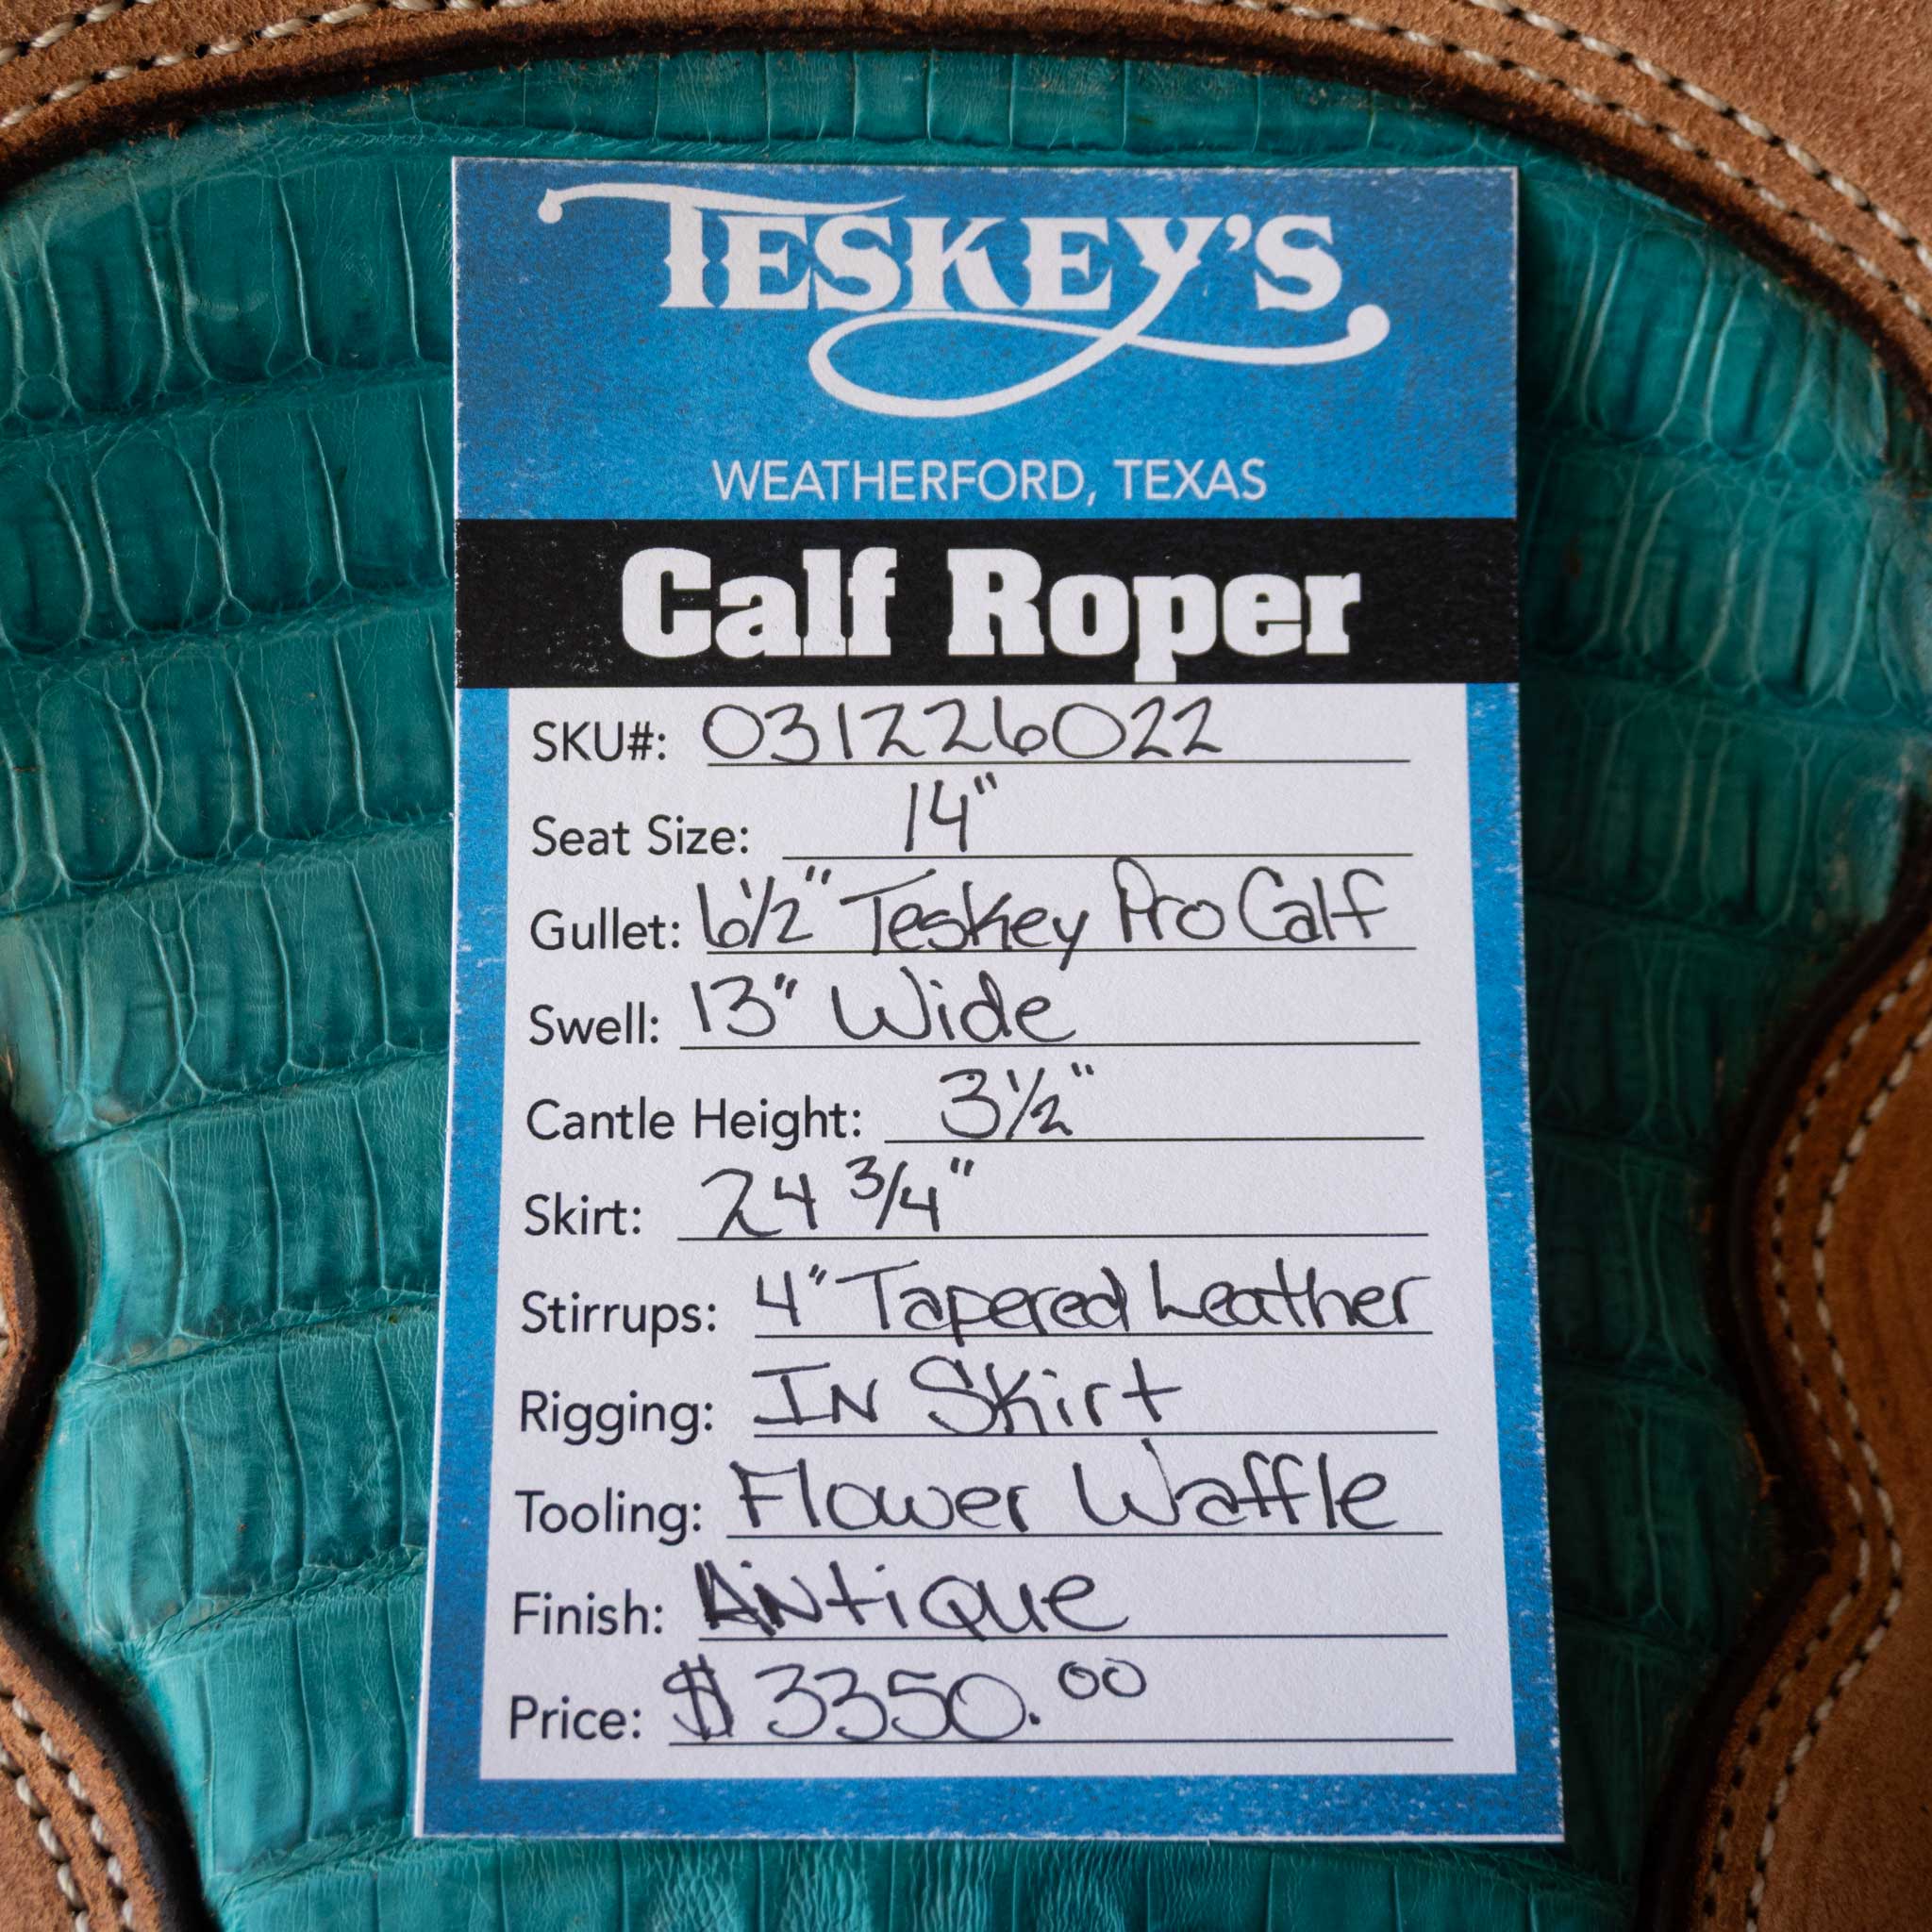 TESKEY'S
WEATHERFORD, TEXAS
Calf Roper
SKU#: 031226022
Seat Size: 14"
Gullet: 6 1/2" Teskey Pro Calf
Swell: 13" Wide
Cantle Height: 3 1/2"
Skirt: 24 3/4"
Stirrups: 4" Tapered Leather
Rigging: IN Skirt
Tooling: Flower Waffle
Finish: ANtique
Price: $ 3350.00